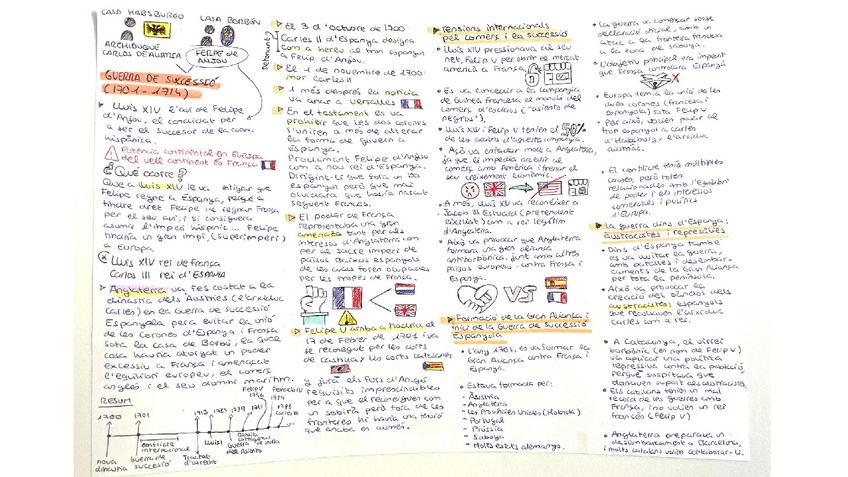 CASA HABSBURGO
CASA BORBÓN
ARCHIDUQUE
CARLOS DE AUSTRIA
FELIPE DE
ANJOU
GUERRA DE SUCCESSIÓ
(1701 - 1714)
Lluís XIV l'avi de Felipe
d'Anjou, el candidat per
a ser el successor de la
hispànica.
Potencia continental en Europa
del vell continent és França
¿Qué ocorre?
Que a Lluís XIV le va
Felipe regne a Espanya, perquè a
tindre dret Felipe de regnar França
per el seu avi, i si consiguera
assumir l'imperi hispànic... Felipe
tindria un gran imperi (superimperi)
a Europa.
Lluís XIV rei de França
Carlos III rei d'ESPANYA
Anglaterra va fer costat a la
dinastia dels Àustries (l'arxiduc
Carles) en la Guerra de Successió
Espanyola per a evitar la unió
de les Corones d'Espanya i França
sota la casa de Borbó, la qual
cosa hauria atorgat un poder
excessiu a França i amenaçat
l'equilibri europeu, el comerç
anglés i el seu domini marítim.
RESUM
1700
1701
1713
nova
dinastia
Guerra de
successió
conflicte
internacional
Tractat
d'Utrecht
El 3 d'octubre de 1700
Carles II d'Espanya designa
com a hereu al tron espanyol
a Felip d'Anjou.
El 1 de novembre de 1700
mor Carles II
1 mes després la notícia
va anar a Versalles
En el testament es va
prohibir que les dos corones
s'uniren a més de alterar
la forma de govern a
Espanya.
Proclament Felipe d'Anjou
com a nou rei d'Espanya.
Dirigint-li que fora un bo
espanyol però que mai
oblidara que havia nascut
sent francés.
El poder de França
representava una gran
amenaça tant per als
interesos d'Anglaterra com
per al sacre imperi de
països Baixos espanyols
de les quals foren ocupades
per les tropes de França.
Felipe V arriba a Madrid el
17 de Febrer de 1701 i va
se reconegut per les corts
de Castella y les corts catalanes
y jurà els Furs d'Aragó
requisits imprescindibles
per a que el reconegueren com
un sobirà però fora de les
fronteres hi havia una tensió
que anaba en aumés.
Tensions internacionals
pel comerç i la successió
Lluís XIV pressionava al seu
net, Felip V per obrir el mercat
americà a França.
Es va concedir a la companyia
de Guinea francesa el monopoli del
comerç d'esclaus ("asiento de
negros").
Lluís XIV i Felip V tenien el 50%
de les accions d'aquesta companyia.
Açò va enfadar molt a Anglaterra,
ja que li impedia accedir al
comerç amb Amèrica i frenar el
seu creixement econòmic.
A més, Lluís XIV va reconéixer a
Jacob III Estuard (pretendent
escocés) com a rei legítim
d'Anglaterra.
Açò va provocar que Anglaterra
formara una gran aliança
antiborbònica, junt amb altres
països europeus, contra França i
Espanya.
VS
Formació de la Gran Aliança i
inici de la Guerra de Successió
Espanyola
L'any 1701, es va formar la
Gran Aliança contra França i
Espanya.
Estava formada per:
- Àustria
- Anglaterra
- Les Províncies Unides (Holanda)
- Portugal
- Prússia
- Saboya
- Molts estats alemanys.
La guerra va començar sense
declaració oficial, amb un
atac a la frontera francesa
a la zona de Saboya.
L'objectiu principal era impedir
que França controlara Espanya
Europa temia la unió de les
dues corones (francesa i
espanyola) sota Felip V
Per això, volien passar el
tron espanyol a Carles
d'Habsburg, l'arxiduc
austríac.
El conflicte tenia múltiples
causes, però totes
relacionades amb l'equilibri
de poder i els interessos
comercials i polítics
d'Europa.
La guerra dins d'Espanya:
austracistes i repressives
Dins d'Espanya també
es va lluitar la guerra,
amb batalles i desembar-
caments de la Gran Aliança
per tota la península.
Això va provocar la
creació del bàndol dels
austracistes: espanyols
que recolzaven l'arxiduc
Carles com a rei.
A Catalunya, el virrei
borbònic (en nom de Felip V)
va aplicar una política
repressiva contra la població
perquè sospitava que
donaven suport als austracistes.
Els catalans tenien un mal
record de les guerres amb
França, i no volien un rei
francés (Felip V)
Anglaterra preparava un
desembarcament a Barcelona,
i molts catalans volien col·laborar-hi.